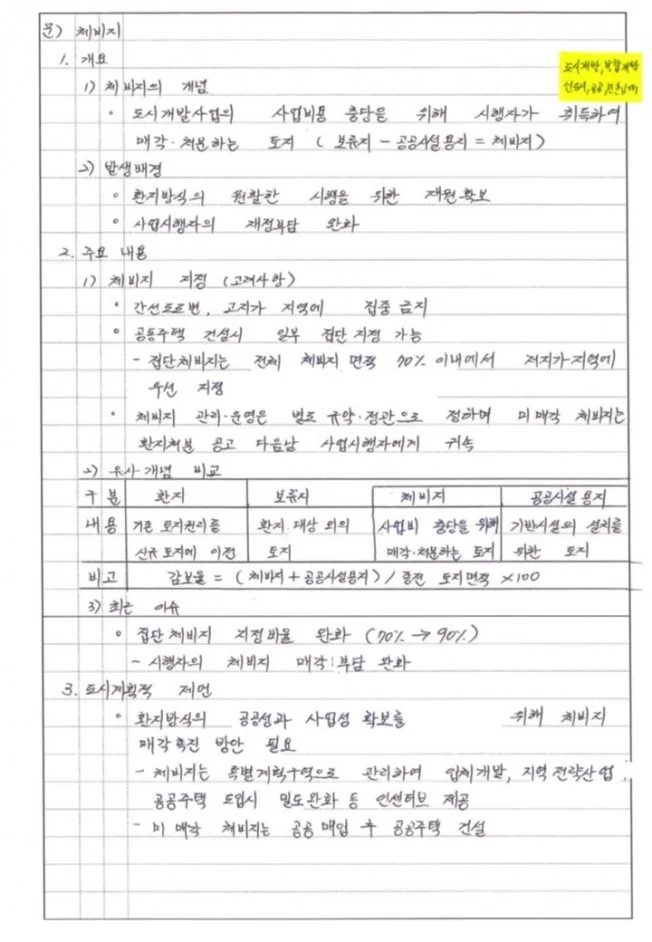 문) 체비지
1. 개요
도시개발, 복합개발
1) 체비지의 개념
◦ 도시개발사업의 사업비용 충당을 위해 시행자가 취득하여
매각·처분하는 토지 (보류지 - 공공시설용지 = 체비지)
2) 발생배경
◦ 환지방식의 원활한 시행을 위한 재원확보
◦ 사업시행자의 재정부담 완화
2. 주요 내용
1) 체비지 지정 (고려사항)
◦ 간선도로변, 고지가 지역에 집중 금지
◦ 공동주택 건설시 일부 집단 지정 가능
- 집단체비지는 전체 체비지 면적 70% 이내에서 저지가 지역에
우선 지정
◦ 체비지 관리·운영은 별도 규약·정관으로 정하며 미매각 체비지는
환지처분 공고 다음날 사업시행자에게 귀속
2) 유사개념 비교
구분 환지 보류지 체비지 공공시설 용지
내용 기존 토지권리를 환지 대상 외의 사업비 충당을 위해 기반시설의 설치를
신규 토지에 이전 토지 매각·처분하는 토지 위한 토지
비고 감보율 = (체비지 + 공공시설용지) / 종전 토지면적 ×100
3) 최근 이슈
◦ 집단 체비지 지정비율 완화 (70% → 90%)
- 시행자의 체비지 매각 부담 완화
3. 도시계획적 제언
◦ 환지방식의 공공성과 사업성 확보를 위해 체비지
매각촉진 방안 필요
- 체비지는 특별계획구역으로 관리하여 입체개발, 지역전략산업,
공공주택 도입시 밀도완화 등 인센티브 제공
- 미매각 체비지는 공공 매입 후 공공주택 건설